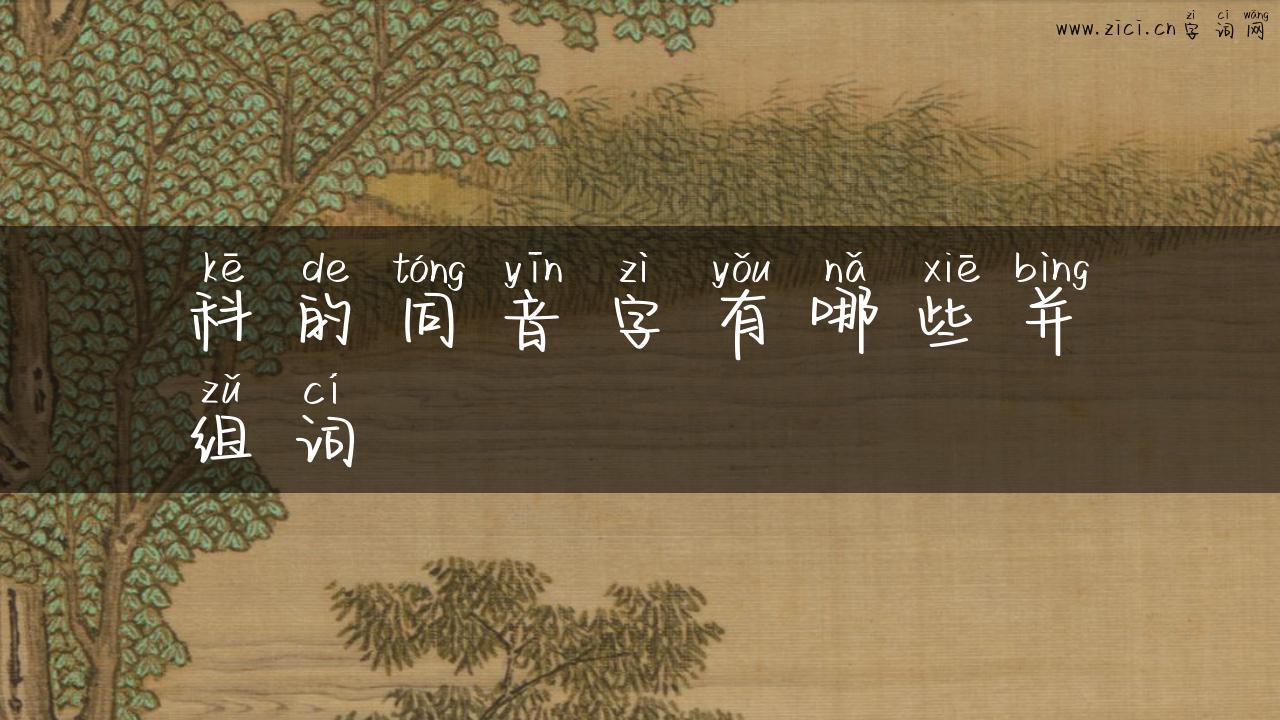 zì cí wǎng
www.zici.cn 字词网
kē de tóng yīn zì yǒu nǎ xiē bìng
科的同音字有哪些并
zǔ cí
组词